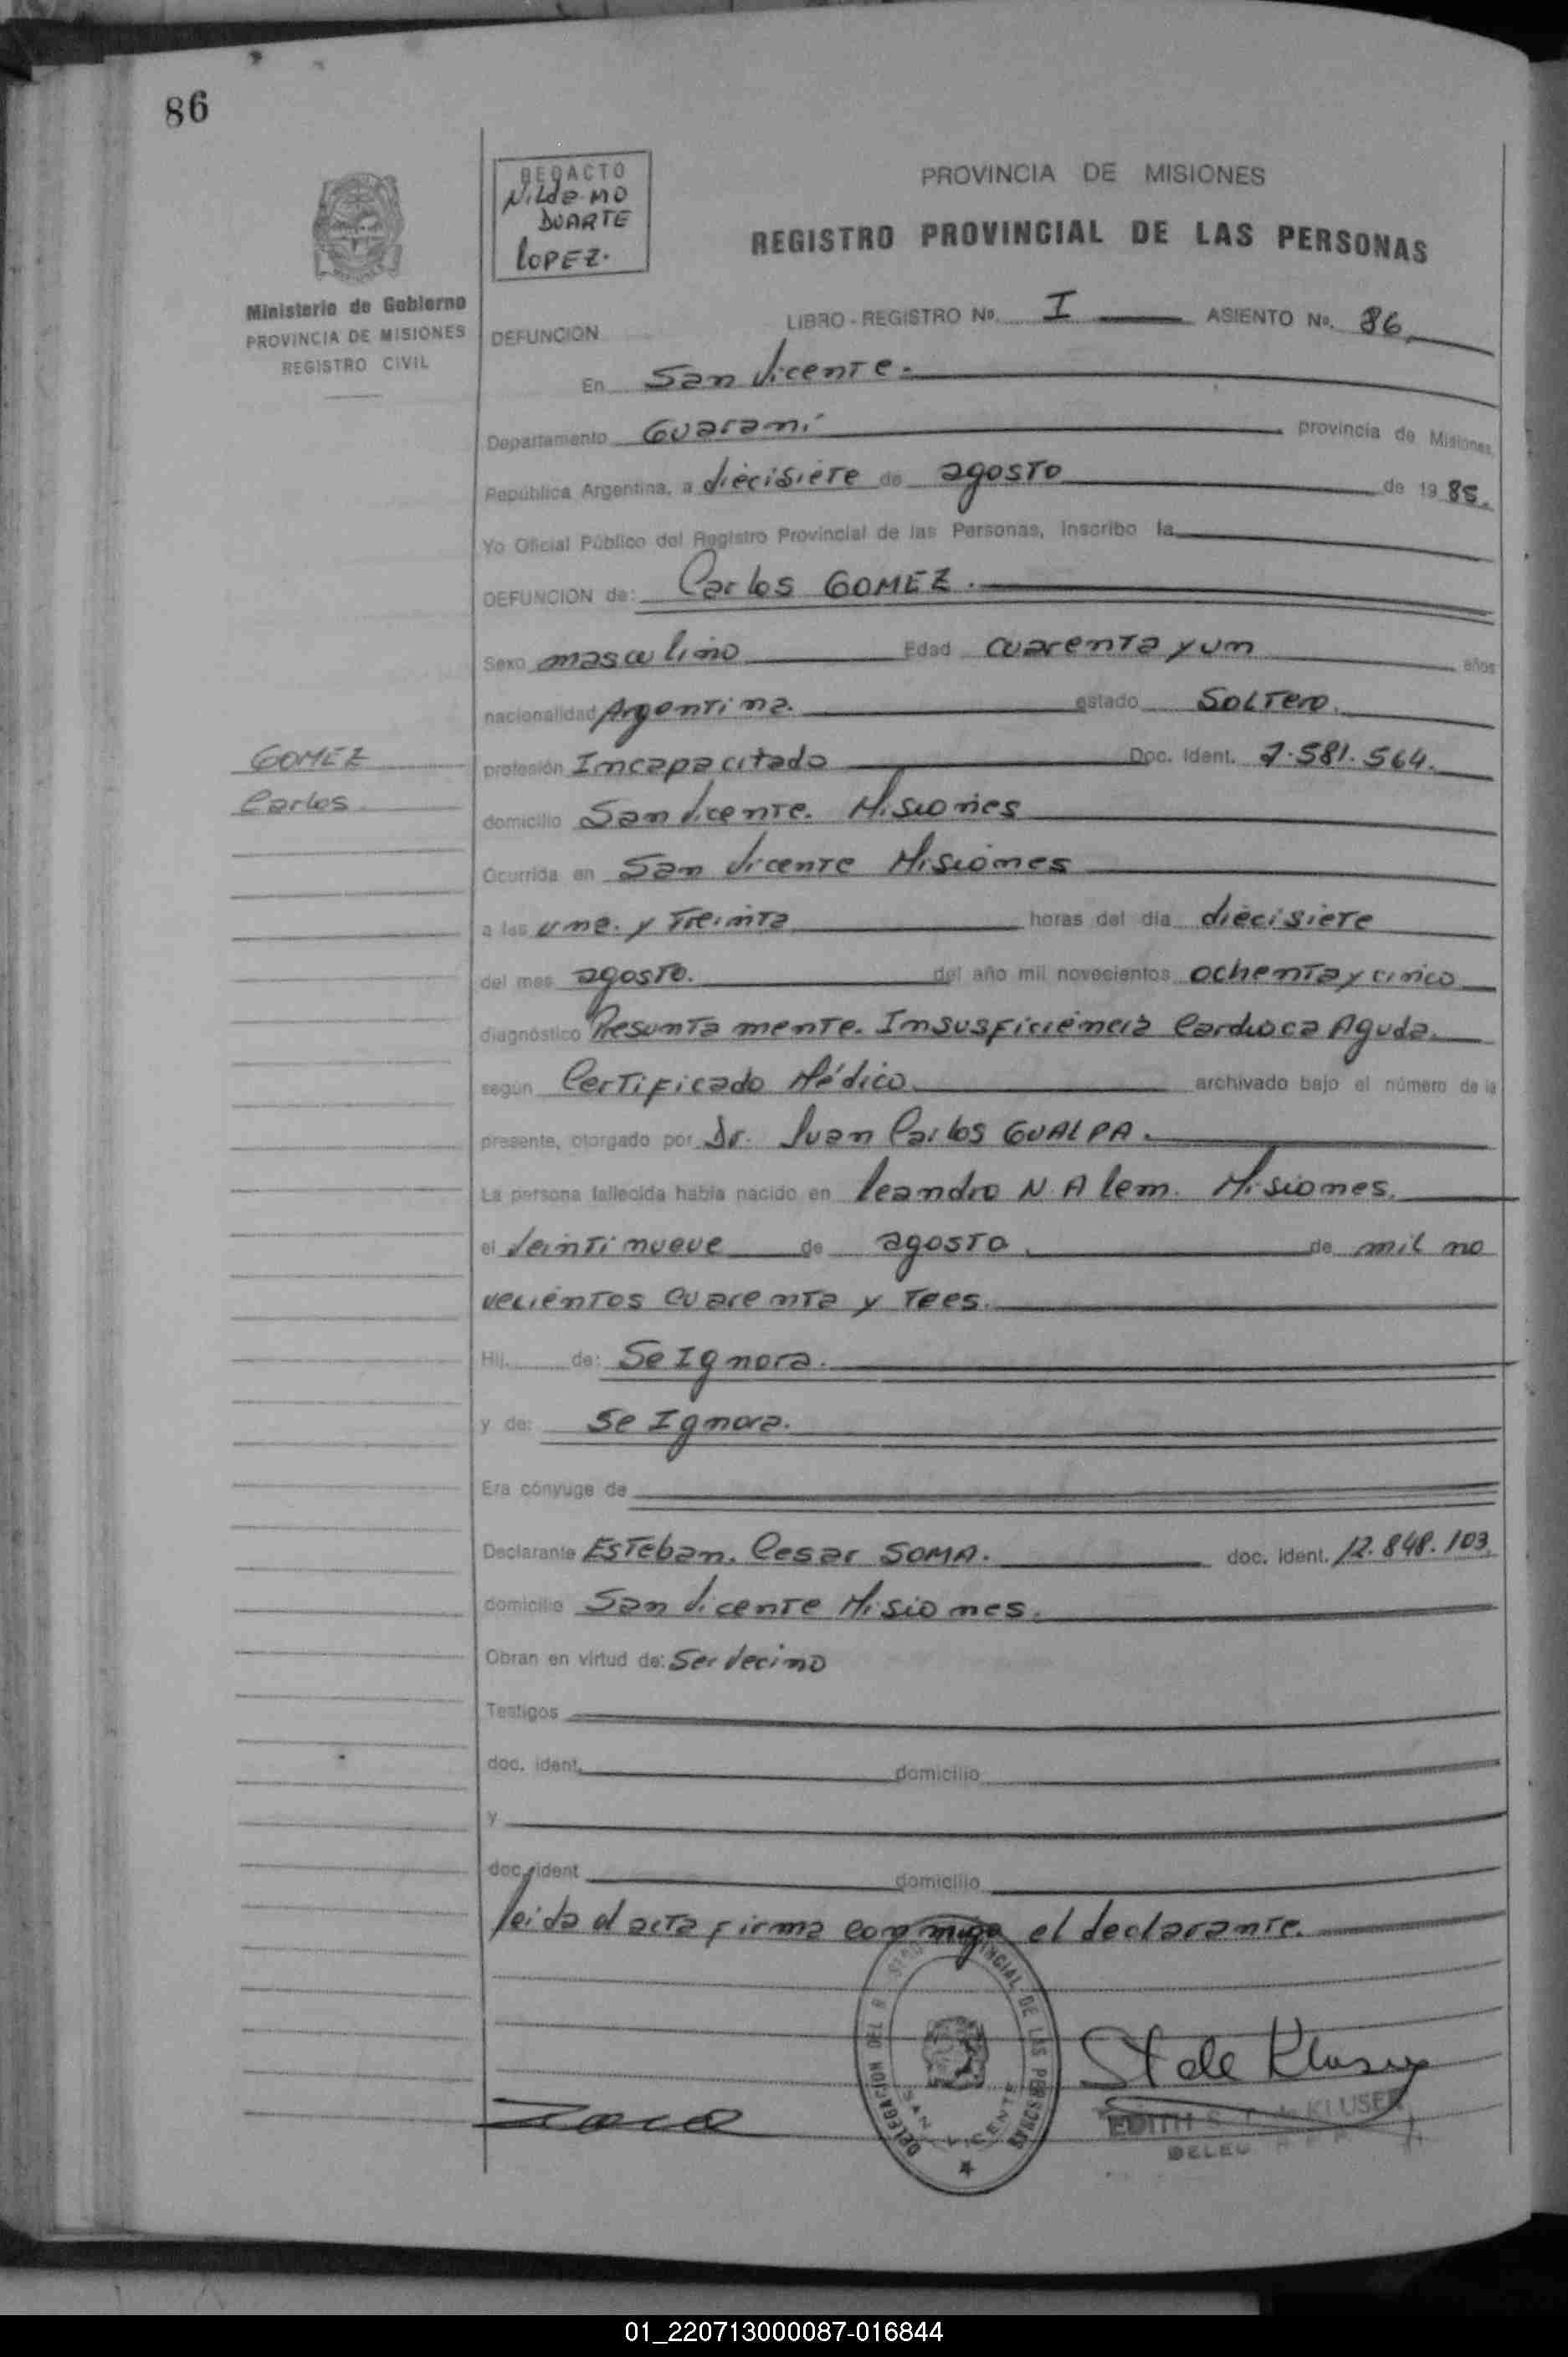 86
REDACTO
Nildo MO
DUARTE
LOPEZ.
PROVINCIA DE MISIONES
REGISTRO PROVINCIAL DE LAS PERSONAS
Ministerio de Gobierno
PROVINCIA DE MISIONES
REGISTRO CIVIL
DEFUNCION
LIBRO - REGISTRO No. I ASIENTO No. 86
En San Vicente.
Departamento Guaraní provincia de Misiones,
República Argentina, a diecisiete de agosto de 19 85.
Yo Oficial Público del Registro Provincial de las Personas, inscribo la
DEFUNCION de: Carlos GOMEZ.
Sexo masculino Edad cuarenta y un años
nacionalidad Argentina. estado Soltero.
GOMEZ
Carlos
profesión Incapacitado Doc. Ident. 7.581.564.
domicilio San Vicente. Misiones
Ocurrida en San Vicente Misiones
a las una. y Treinta horas del día diecisiete
del mes agosto. del año mil novecientos ochenta y cinco
diagnóstico Presuntamente. Insusficiencia Cardioca Aguda.
según Certificado Médico archivado bajo el número de la
presente, otorgado por Dr. Juan Carlos GUALPA.
La persona fallecida había nacido en Leandro N. Alem. Misiones.
el Veintinueve de agosto, de mil no
vecientos cuarenta y Tees.
Hij de: Se Ignora.
y de: Se Ignora.
Era cónyuge de
Declarante Esteban. Cesar SOMA. doc. ident. 12.848.103
domicilio San Vicente Misiones.
Obran en virtud de: Ser Vecino
Testigos
doc. ident. domicilio
y
doc. ident domicilio
leida el acta firma conmigo el declarante.
DELEGACION DEL REGISTRO PROVINCIAL DE LAS PERSONAS
SAN VICENTE
St de Kluser
EDITH S. T. de KLUSER
01_220713000087-016844